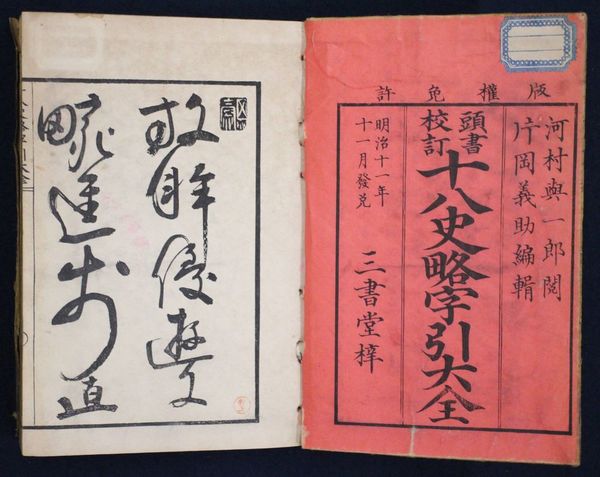 版權免許
河村與一郎閲
片岡義助編輯
頭書
校訂
十八史略字引大全
明治十一年
十一月發兌
三書堂梓
放眸遊文
進步直